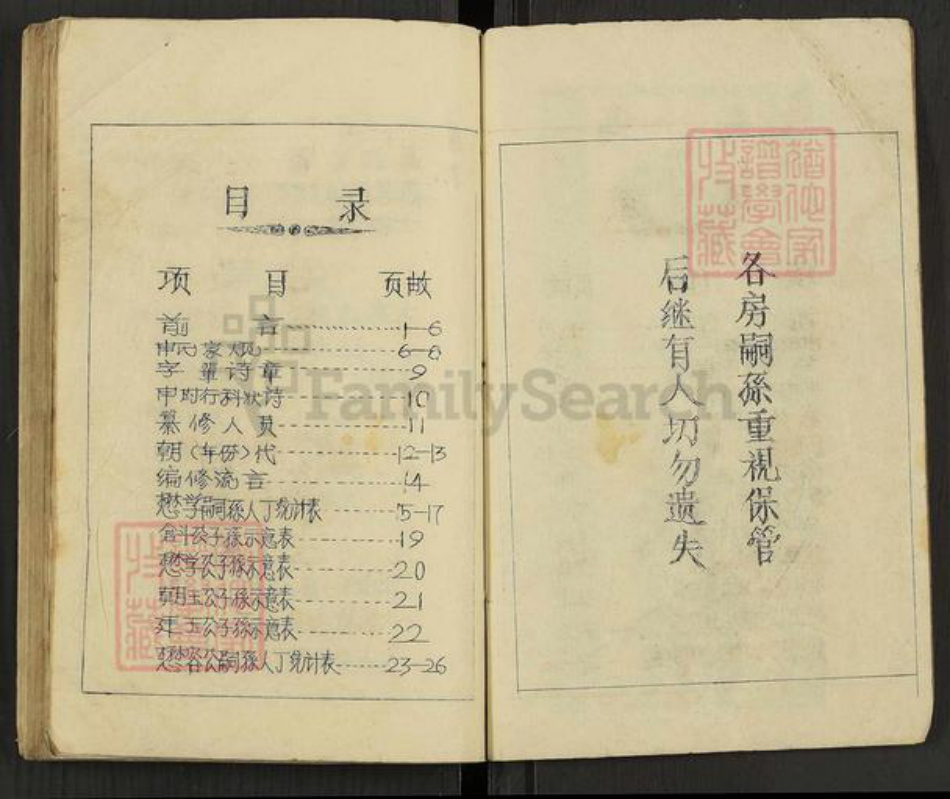 目 录
项 目 页数
前 言 1—6
申氏家规 6—8
字辈诗章 9
申时行科状诗 10
纂修人员 11
朝(年份)代 12—13
编修流言 14
懋学嗣孫人丁统计表 15—17
公子孫示意表 19
懋学公子孫示意表 20
朝玉公子孫示意表 21
玉公子孫示意表 22
懋容公嗣孫人丁统计表 23—26
各房嗣孫重視保管
后继有人切勿遗失
猶他家
譜學會
收藏
FamilySearch